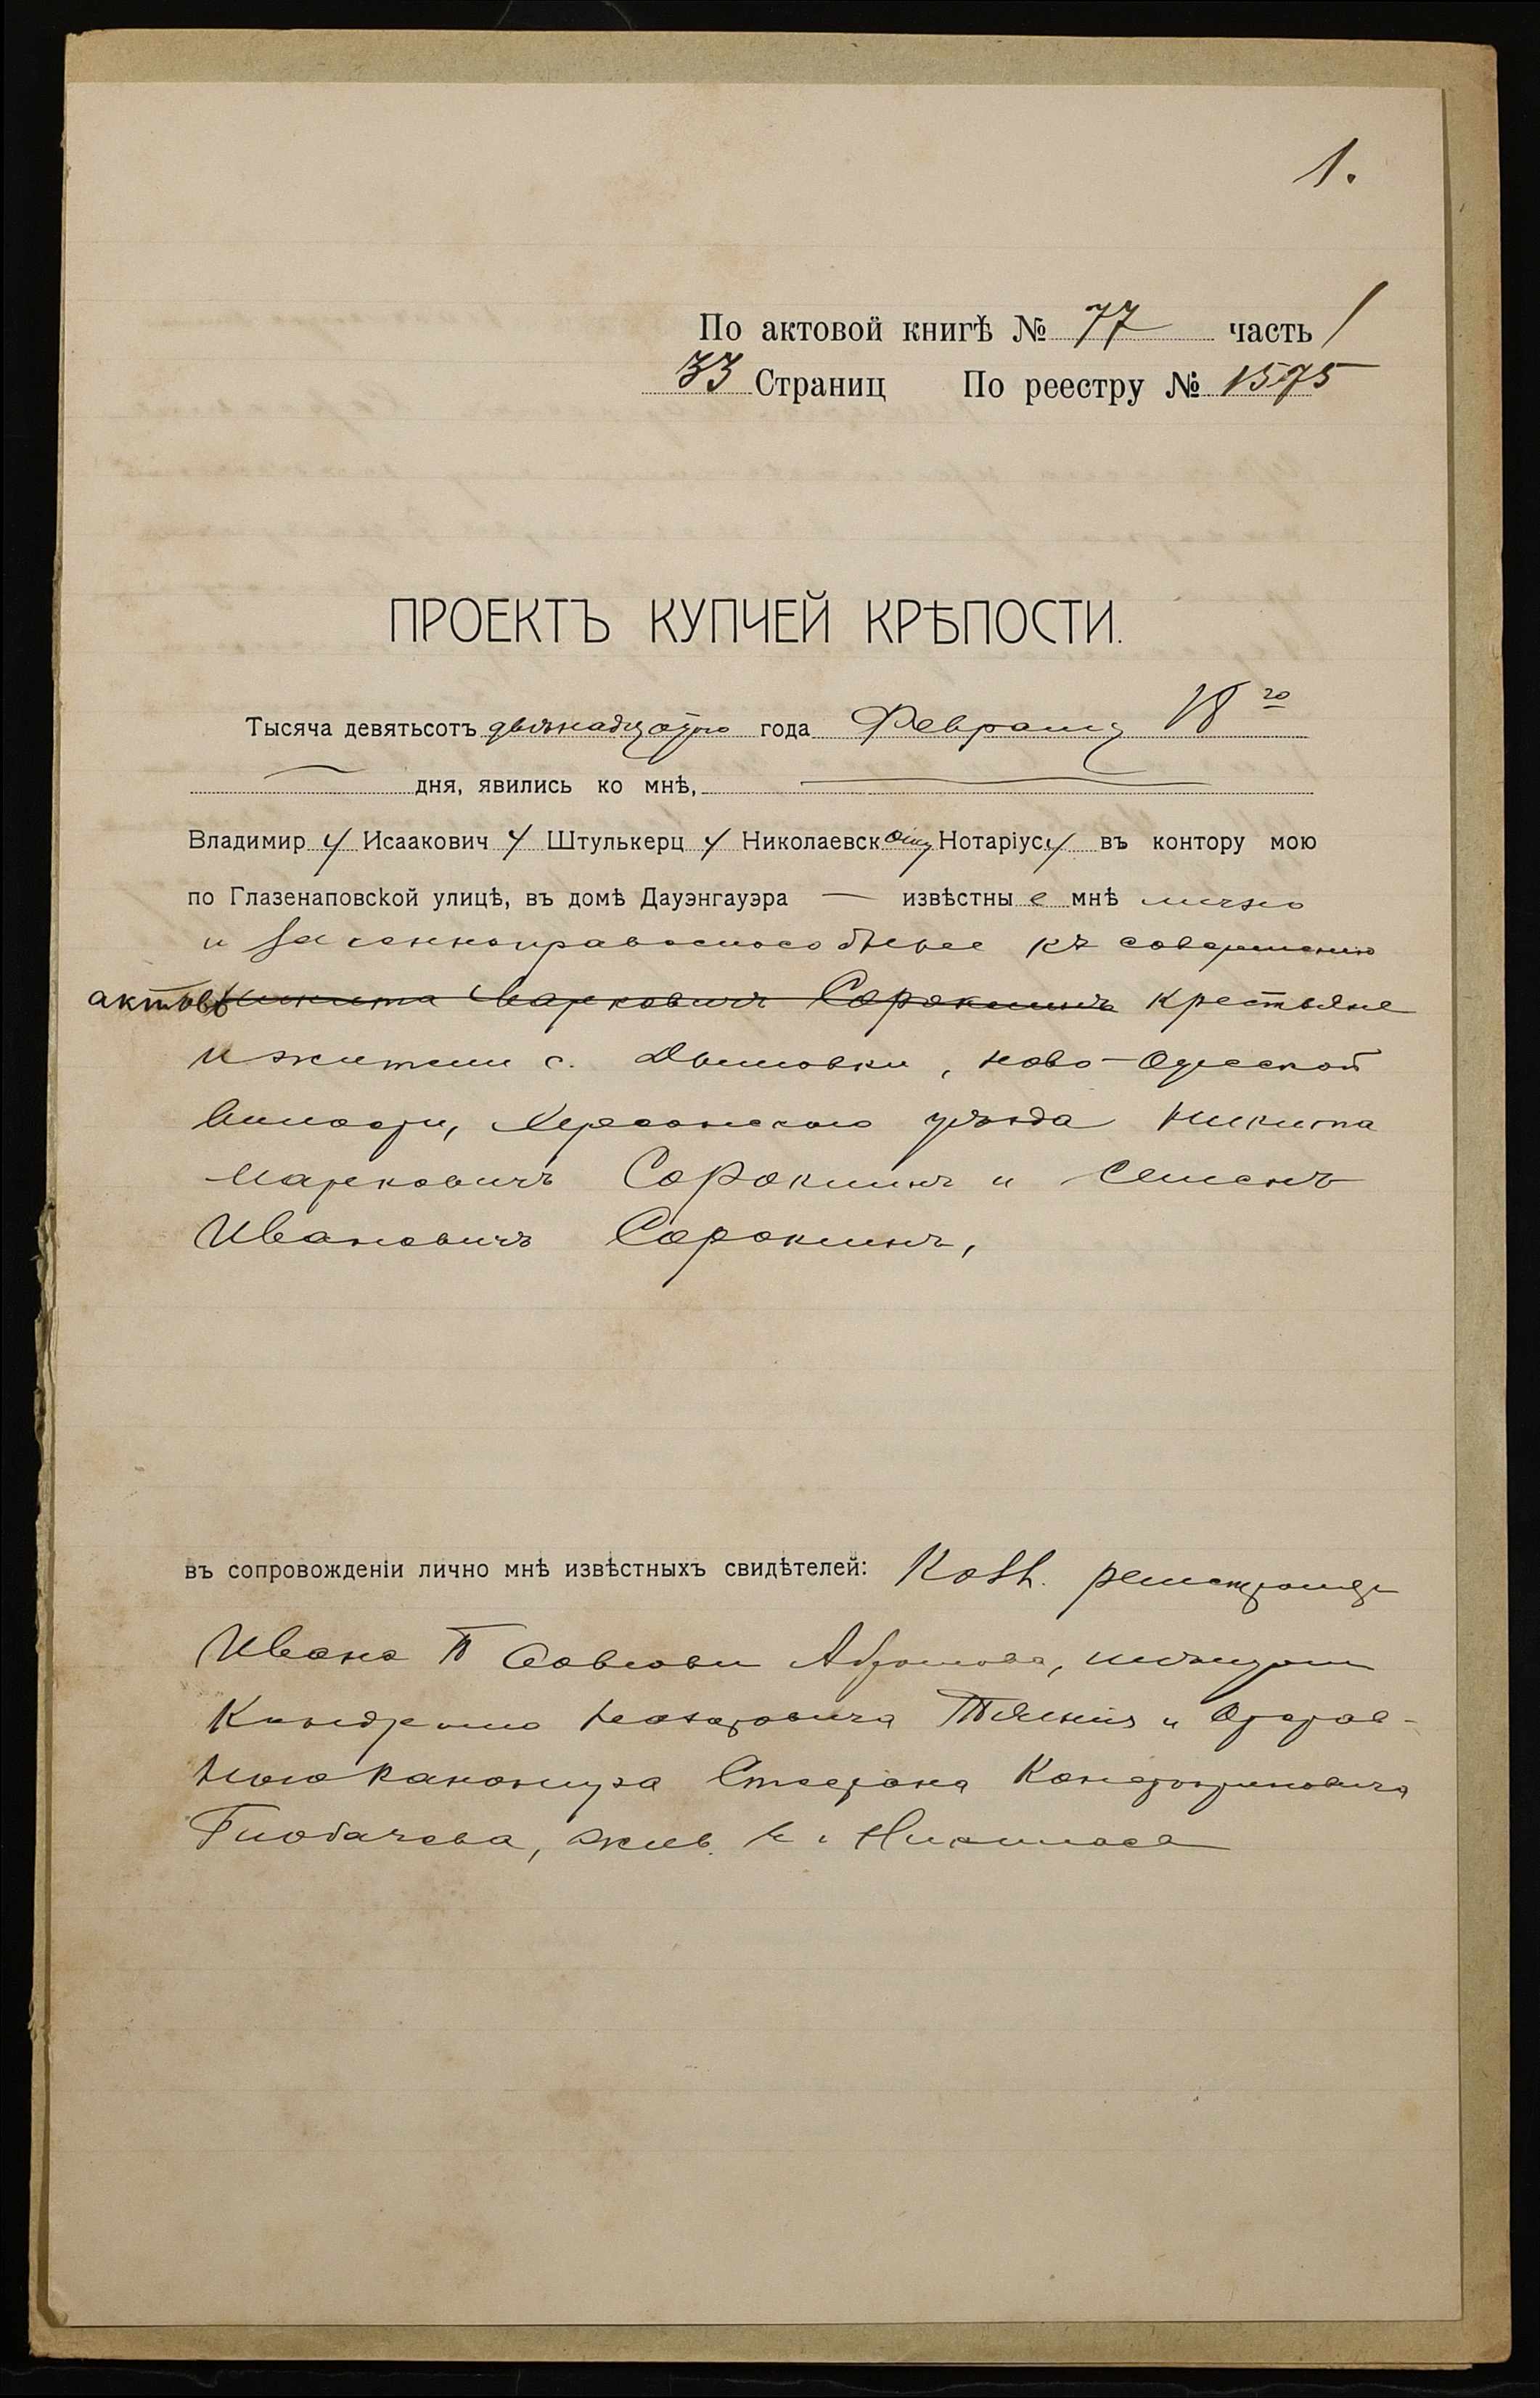 1.
По актовой книгѣ № 77 часть 1
33 Страниц По реестру № 1575
ПРОЕКТЪ КУПЧЕЙ КРѢПОСТИ.
Тысяча девятьсотъ двѣнадцатого года Февраля 18 го
дня, явились ко мнѣ,
Владимиру Исааковичу Штулькерцу Николаевскому Нотаріусу въ контору мою
по Глазенаповской улицѣ, въ домѣ Дауэнгауэра — извѣстные мнѣ лично
и законноправоспособные къ совершенію
актовъ Никита Марковичъ Сорокинъ крестьяне
и жители с. Дымовки, Ново-Одесской
волости, Херсонского уѣзда Никита
Марковичъ Сорокинъ и Семенъ
Ивановичъ Сорокинъ,
въ сопровожденіи лично мнѣ извѣстныхъ свидѣтелей: Колл.
Ивана
и Отстав-
ного Степана
жив. в г. Николаевѣ